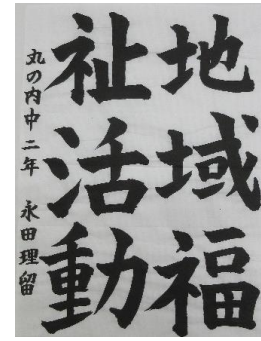 地域福
祉活動
丸の内中二年 永田理留